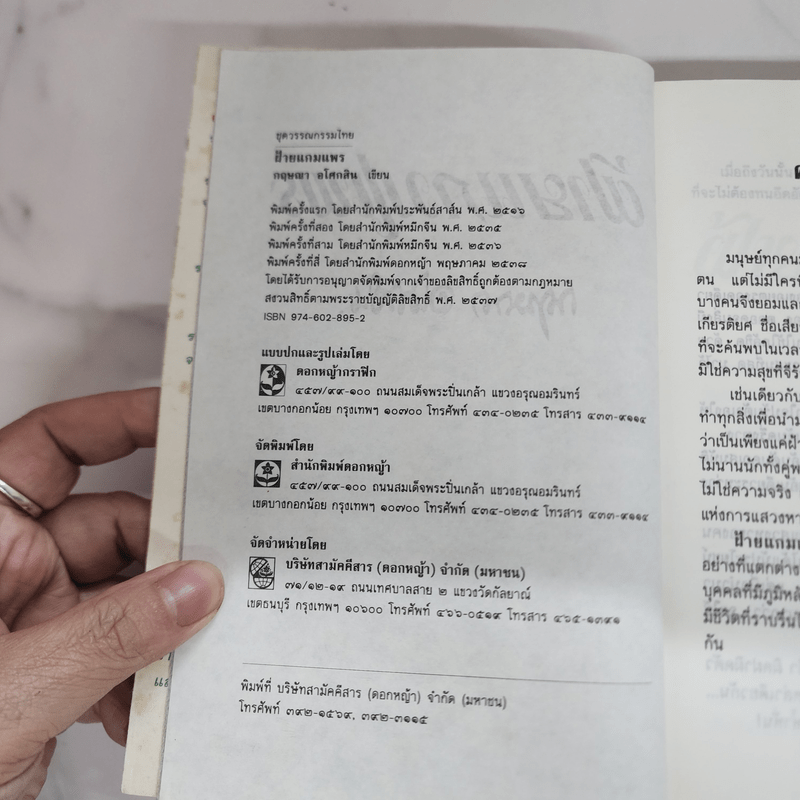 ชุดวรรณกรรมไทย
ฝ้ายแกมแพร
กฤษณา อโศกสิน เขียน
พิมพ์ครั้งแรก โดยสำนักพิมพ์ประพันธ์สาส์น พ.ศ. ๒๕๑๖
พิมพ์ครั้งที่สอง โดยสำนักพิมพ์หมึกจีน พ.ศ. ๒๕๓๕
พิมพ์ครั้งที่สาม โดยสำนักพิมพ์หมึกจีน พ.ศ. ๒๕๓๖
พิมพ์ครั้งที่สี่ โดยสำนักพิมพ์ดอกหญ้า พฤษภาคม ๒๕๓๘
โดยได้รับการอนุญาตจัดพิมพ์จากเจ้าของลิขสิทธิ์ถูกต้องตามกฎหมาย
สงวนสิทธิ์ตามพระราชบัญญัติลิขสิทธิ์ พ.ศ. ๒๕๓๗
ISBN 974-602-895-2
แบบปกและรูปเล่มโดย
ดอกหญ้ากราฟิก
๔๕๗/๙๙-๑๐๐ ถนนสมเด็จพระปิ่นเกล้า แขวงอรุณอมรินทร์
เขตบางกอกน้อย กรุงเทพฯ ๑๐๗๐๐ โทรศัพท์ ๔๓๔-๐๒๓๕ โทรสาร ๔๓๓-๙๑๑๔
จัดพิมพ์โดย
สำนักพิมพ์ดอกหญ้า
๔๕๗/๙๙-๑๐๐ ถนนสมเด็จพระปิ่นเกล้า แขวงอรุณอมรินทร์
เขตบางกอกน้อย กรุงเทพฯ ๑๐๗๐๐ โทรศัพท์ ๔๓๔-๐๒๓๕ โทรสาร ๔๓๓-๙๑๑๔
จัดจำหน่ายโดย
บริษัทสามัคคีสาร (ดอกหญ้า) จำกัด (มหาชน)
๗๑/๑๒-๑๙ ถนนเทศบาลสาย ๒ แขวงวัดกัลยาณ์
เขตธนบุรี กรุงเทพฯ ๑๐๖๐๐ โทรศัพท์ ๔๖๖-๐๕๑๙ โทรสาร ๔๖๕-๑๓๙๑
พิมพ์ที่ บริษัทสามัคคีสาร (ดอกหญ้า) จำกัด (มหาชน)
โทรศัพท์ ๓๙๒-๑๕๖๙, ๓๙๒-๓๑๑๕
มนุษย์ทุกคน
ตน แต่ไม่มีใคร
บางคนจึงยอมแล
เกียรติยศ ชื่อเสีย
ที่จะค้นพบในเวล
มิใช่ความสุขที่จีรั
เช่นเดียวกับ
ทำทุกสิ่งเพื่อนำม
ว่าเป็นเพียงแค่ฝ้
ไม่นานนักทั้งคู่พ
ไม่ใช่ความจริง
แห่งการแสวงหา
ฝ้ายแกมแ
อย่างที่แตกต่าง
บุคคลที่มีภูมิหลั
มีชีวิตที่ราบรื่นไ
กัน